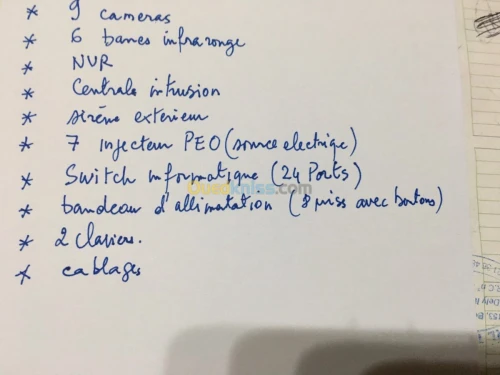 * 9 cameras
* 6 barres infrarouge
* NVR
* Centrale intrusion
* sirène exterieur
* 7 injecteur PEO (source electrique)
* Switch informatique (24 Ports)
Ouedkniss.com
* bandeau d'allimatation (8 priss avec boutons)
* 2 Claviers.
* cablages